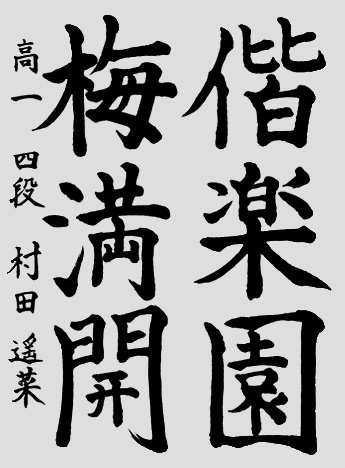 偕楽園
梅満開
高一 四段 村田 遥菜